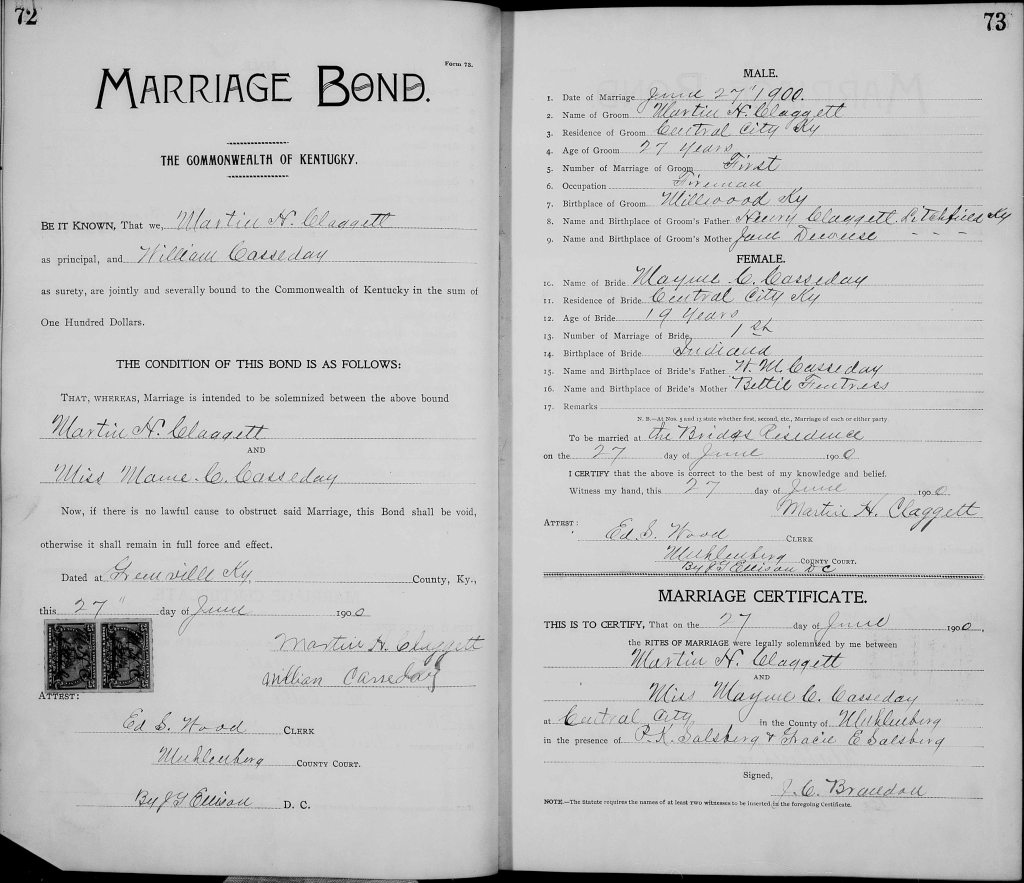 72
Form 73.
MARRIAGE BOND.
THE COMMONWEALTH OF KENTUCKY.
BE IT KNOWN, That we, Martin H. Claggett
as principal, and William Casseday
as surety, are jointly and severally bound to the Commonwealth of Kentucky in the sum of
One Hundred Dollars.
THE CONDITION OF THIS BOND IS AS FOLLOWS:
THAT, WHEREAS, Marriage is intended to be solemnized between the above bound
Martin H. Claggett
AND
Miss Mame. C. Casseday
Now, if there is no lawful cause to obstruct said Marriage, this Bond shall be void,
otherwise it shall remain in full force and effect.
Dated at Greenville Ky. County, Ky.,
this 27" day of June 1900
Martin H. Claggett
William Casseday
ATTEST:
Ed S. Wood CLERK
Muhlenberg COUNTY COURT.
By J G Ellison D. C.
73
MALE.
1. Date of Marriage June 27" 1900.
2. Name of Groom Martin H. Claggett
3. Residence of Groom Central City Ky
4. Age of Groom 27 Years
5. Number of Marriage of Groom First
6. Occupation Fireman
7. Birthplace of Groom Millwood Ky
8. Name and Birthplace of Groom's Father Henry Claggett. Litchfield Ky
9. Name and Birthplace of Groom's Mother Jane - - -
FEMALE.
10. Name of Bride Mayme. C. Casseday
11. Residence of Bride Central City Ky
12. Age of Bride 19 Years
13. Number of Marriage of Bride 1st
14. Birthplace of Bride Indiana
15. Name and Birthplace of Bride's Father W. M. Casseday
16. Name and Birthplace of Bride's Mother Bettie Fentress
17. Remarks
N. B.—At Nos. 5 and 13 state whether first, second, etc., Marriage of each or either party
To be married at the Brides Risedence
on the 27 day of June 1900
I CERTIFY that the above is correct to the best of my knowledge and belief.
Witness my hand, this 27 day of June 1900
Martin H. Claggett
ATTEST:
Ed. S. Wood CLERK
Muhlenberg COUNTY COURT.
By J G Ellison D C
MARRIAGE CERTIFICATE.
THIS IS TO CERTIFY, That on the 27 day of June 1900,
the RITES OF MARRIAGE were legally solemnized by me between
Martin H. Claggett
AND
Miss Mayme C. Casseday
at Central City, in the County of Muhlenberg
in the presence of P. K. Salsberg & Gracie E Salsberg
Signed,
J. C. Brandon
NOTE.—The Statute requires the names of at least TWO witnesses to be inserted in the foregoing Certificate.